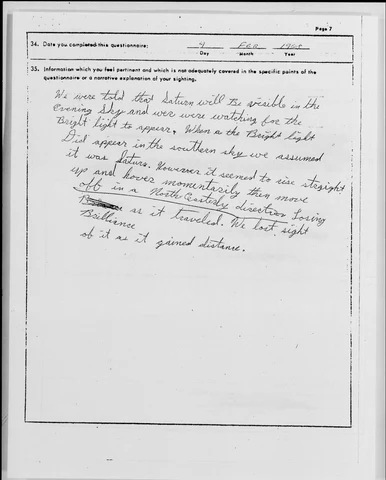 Page 7
34. Date you completed this questionnaire: 9 Feb
Day Month Year
35. Information which you feel pertinent and which is not adequately covered in the specific points of the
questionnaire or a narrative explanation of your sighting.
We were told that Saturn will Be visible in the
Evening Sky and wer were watching for the
Bright light to appear. When a the Bright light
Did appear in the southern sky we assumed
it was Saturn. However it seemed to rise straight
up and hover momentarily then move
off in a North Easterly direction Losing
as it traveled. We lost sight
Brilliance
of it as it gained distance.